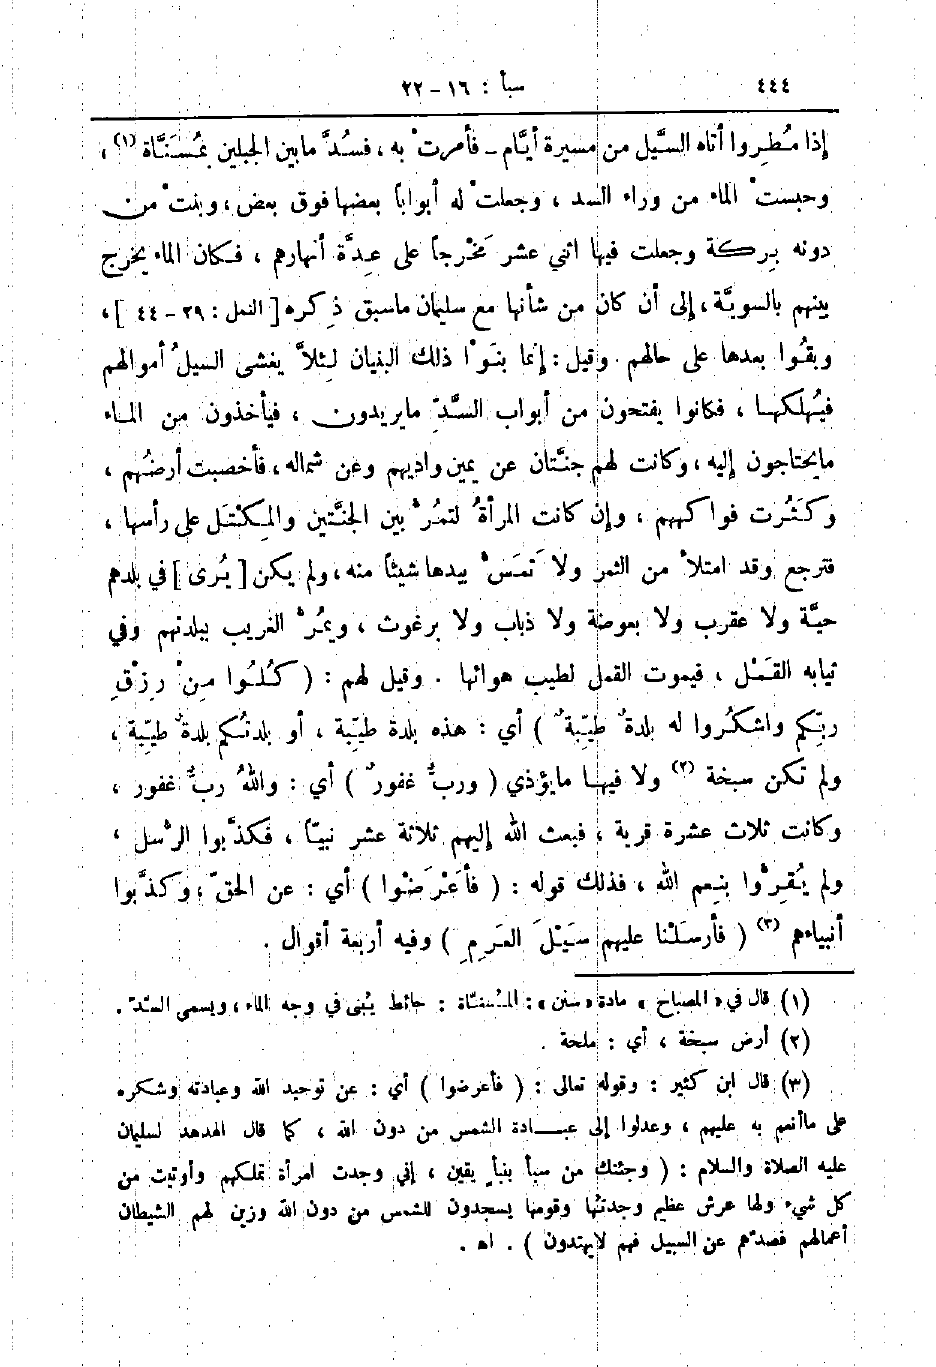 ٤٤٤
سبأ : ١٦ – ٢٢
إذا مُطِروا أتاه السَّيل من مسيرة أيَّام – فأمرتْ به ، فسُدَّ مابين الجبلين بمُسَنَّاة (١) ،
وحبستْ الماء من وراء السد ، وجعلتْ له أبواباً بعضها فوق بعض ، وبنتْ من
دونه بِركة وجعلت فيها اثني عشر مَخْرجاً على عِدَّة أنهارهم ، فكان الماء يخرج
بينهم بالسويَّة ، إلى أن كان من شأنها مع سليمان ماسبق ذِكره [ النمل : ٢٩ – ٤٤ ] ،
وبقُوا بعدها على حالهم . وقيل : إنما بنَوْا ذلك البنيان لئلاَّ يغشى السيلُ أموالهم
فيُهلكها ، فكانوا يفتحون من أبواب السَّدِّ مايريدون ، فيأخذون من الماء
مايحتاجون إليه ، وكانت لهم جنَّتان عن يمين واديهم وعن شماله ، فأخصبت أرضُهم ،
وكَثُرت فواكههم ، وإن كانت المرأةُ لتمُرُّ بين الجنَّتين والمِكْتَل على رأسها ،
فترجع وقد امتلأ من الثمر ولا تَمَسُّ بيدها شيئاً منه ، ولم يكن [ يُرى ] في بلدهم
حيَّة ولا عقرب ولا بعوضة ولا ذباب ولا برغوث ، ويمُرُّ الغريب ببلدتهم وفي
ثيابه القَمْل ، فيموت القمل لطيب هوائها . وقيل لهم : ( كُلُوا مِنْ رِزْقِ
ربِّكم واشكُروا له بلدةٌ طيِّبةٌ ) أي : هذه بلدة طيِّبة ، أو بلدتُكم بلدةٌ طيِّبة ،
ولم تكن سبخة (٢) ولا فيها مايؤذي ( وربٌّ غفورٌ ) أي : واللهُ ربٌّ غفور ،
وكانت ثلاث عشرة قرية ، فبعث الله إليهم ثلاثة عشر نبيّاً ، فكذَّبوا الرُّسل ،
ولم يُقِرُّوا بنِعم الله ، فذلك قوله : ( فأَعْرَضُوا ) أي : عن الحقّ ، وكذَّبوا
أنبياءهم (٣) ( فأرسَلْنا عليهم سَيْلَ العَرِمِ ) وفيه أربعة أقوال .
(١) قال في « المصباح » مادة « سنن » : المُسنَّاة : حائط يُبنى في وجه الماء ، ويسمى السَّدّ .
(٢) أرض سبخة ، أي : ملحة .
(٣) قال ابن كثير : وقوله تعالى : ( فأعرضوا ) أي : عن توحيد الله وعبادته وشكره
على ماأنعم به عليهم ، وعدلوا إلى عبادة الشمس من دون الله ، كما قال الهدهد لسليمان
عليه الصلاة والسلام : ( وجئتك من سبأ بنبأٍ يقين ، إني وجدت امرأة تملكهم وأوتيت من
كل شيء ولها عرش عظيم وجدتُها وقومها يسجدون للشمس من دون الله وزين لهم الشيطان
أعمالهم فصدّهم عن السبيل فهم لايهتدون ) . اه .